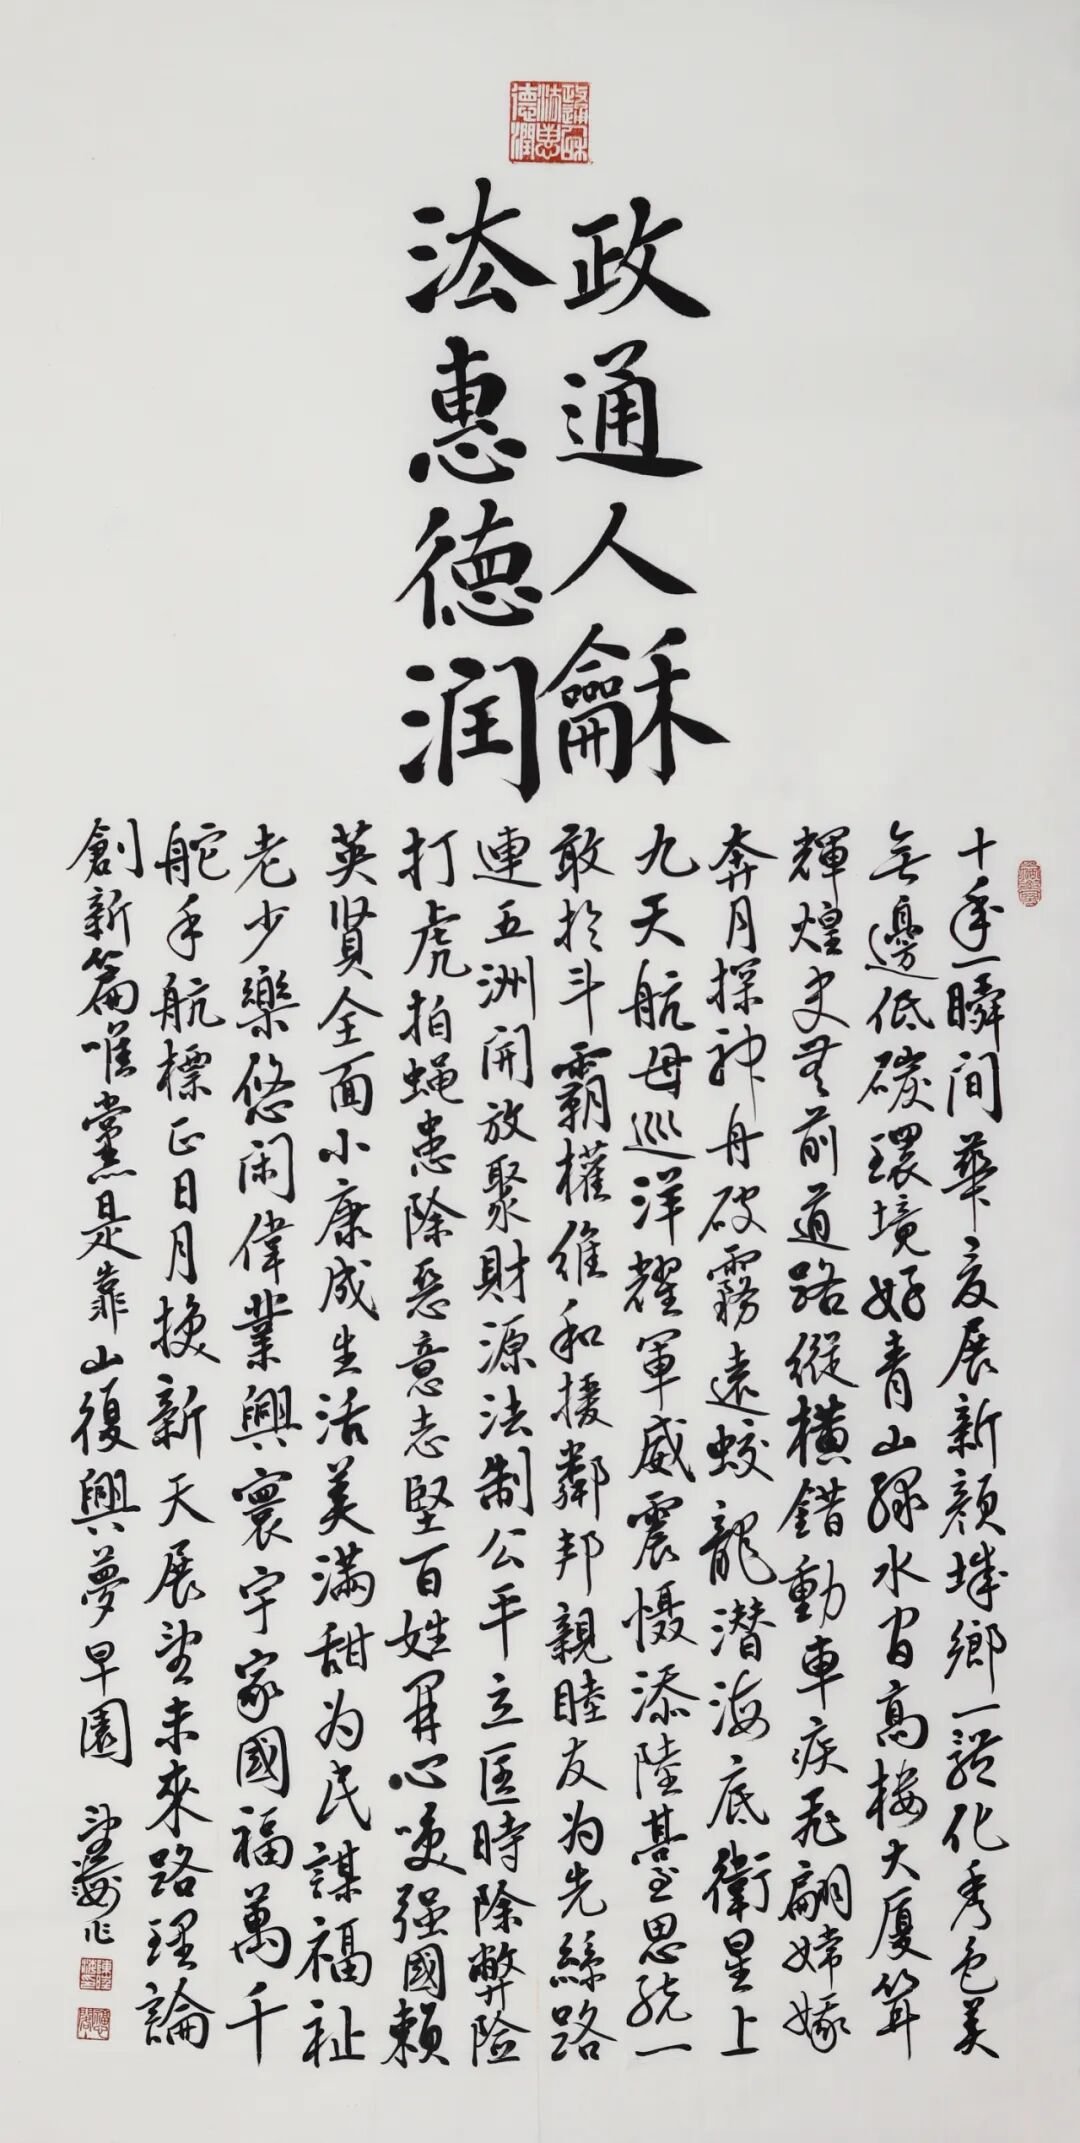 政通人龢
法惠德润
政通人龢法惠德潤
十年一瞬间華夏展新顔城鄉一體化秀色美
無邊低碳環境好青山綠水間高樓大厦耸
輝煌史無前道路縱横錯動車疾飛翩嫦娥
奔月探神舟破霧遠蛟龍潜海底衛星上
九天航母巡洋耀軍威震慑添陸臺思統一
敢於斗霸權維和援鄰邦親睦友为先絲路
連五洲開放聚財源法制公平立匡時除弊險
打虎拍蝇患除惡意志堅百姓開心笑强國賴
英贤全面小康成生活美满甜为民謀福祉
老少樂悠闲偉業興寰宇家國福萬千
舵手航標正日月换新天展望未來路理論
創新篇唯黨是靠山復興夢早圓
望海作